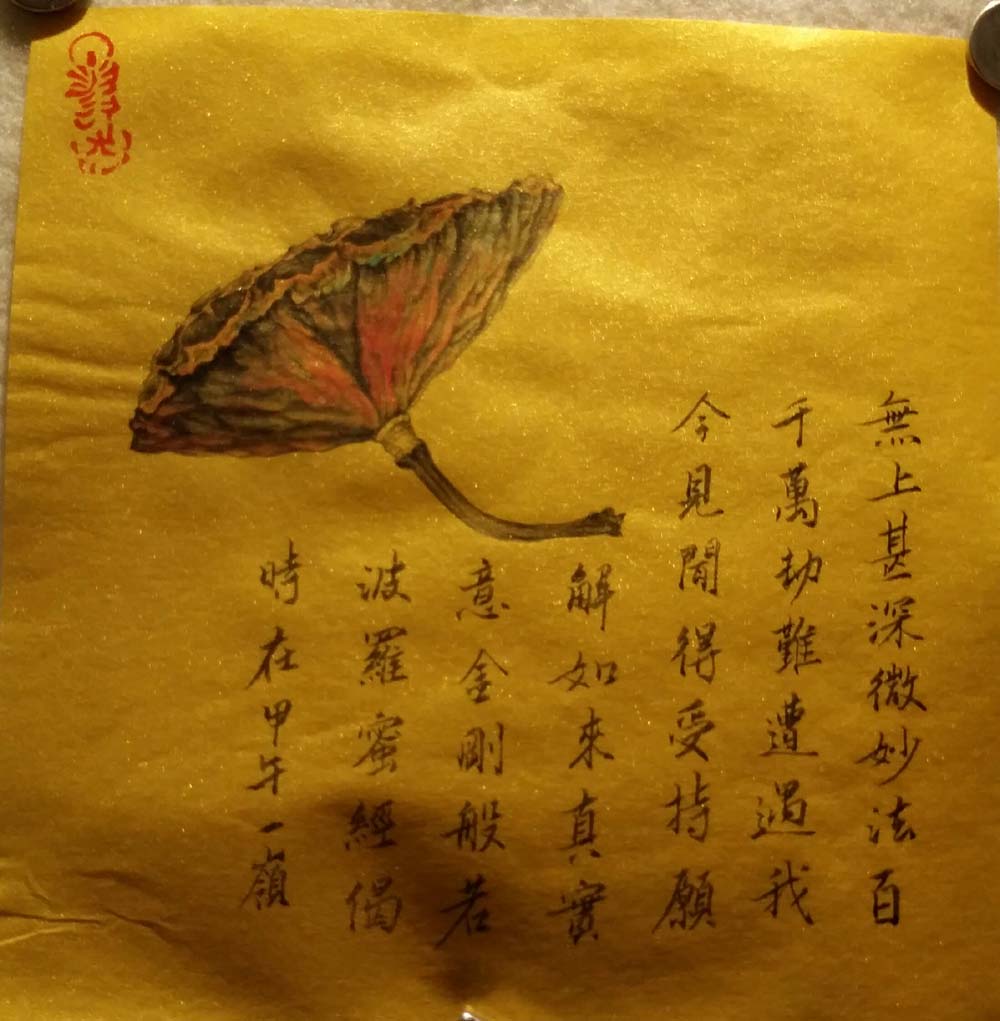 無上甚深微妙法百
千萬劫難遭遇我
今見聞得受持願
解如來真實
意金剛般若
波羅蜜經偈
時在甲午一嶺